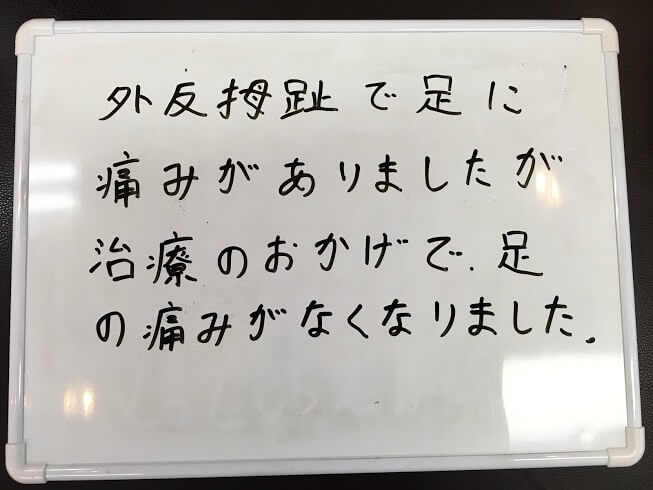 外反拇趾で足に
痛みがありましたが
治療のおかげで、足
の痛みがなくなりました。